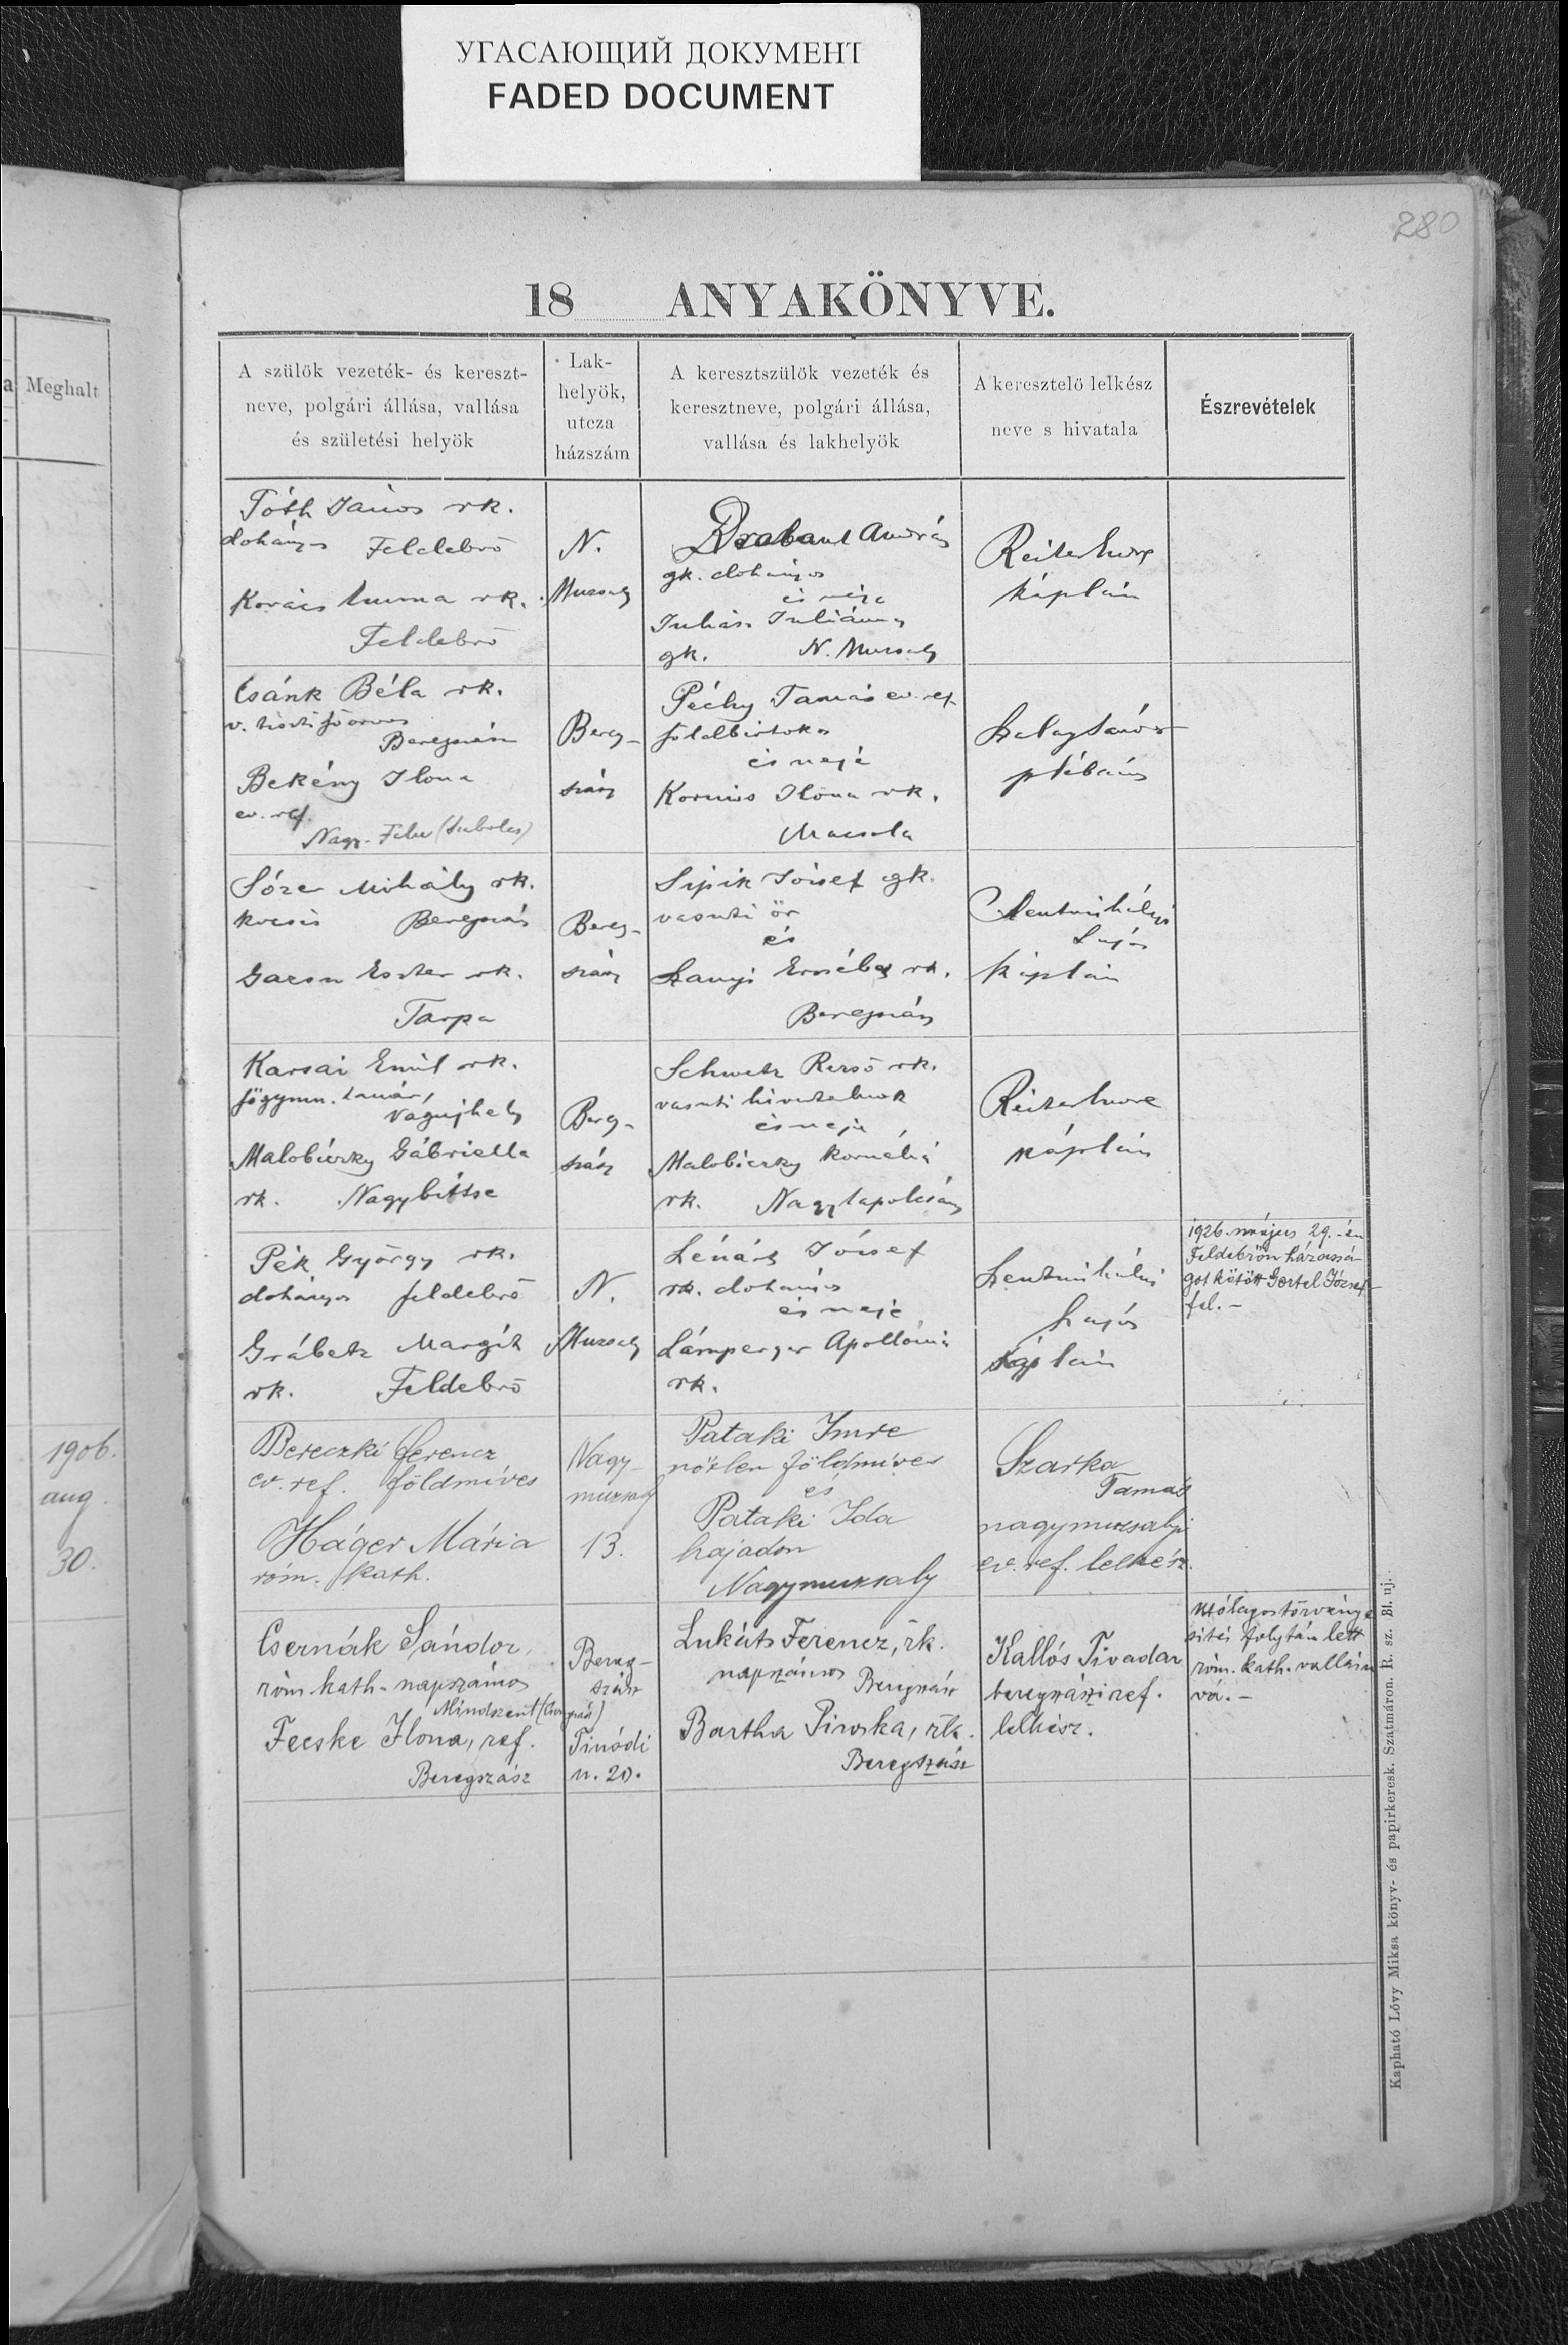 УГАСАЮЩИЙ ДОКУМЕНТ
FADED DOCUMENT
280
18 ANYAKÖNYVE.
a Meghalt
1906.
aug.
30.
A szülők vezeték- és kereszt-
neve, polgári állása, vallása
és születési helyök
Lak-
helyök,
utcza
házszám
A keresztszülők vezeték és
keresztneve, polgári állása,
vallása és lakhelyök
A keresztelő lelkész
neve s hivatala
Észrevételek
Tóth János rk.
dohányos Feldebrő
Kovács rk.
Feldebrő
N.
Muzsaly
András
gk. dohányos
és neje
Juhász Juliánna
gk. N. Muzsaly
Reiter Imre
káplán
Csánk Béla rk.
v. tiszti főorvos
Beregszász
Bekény Ilona
ev. ref.
Bereg-
szász
Péchy Tamás ev. ref.
földbirtokos
és neje
Kornis Ilona rk.
Macsola
plébános
Mihály rk.
kocsis Beregszász
Eszter rk.
Tarpa
Bereg-
szász
Sipik József gk.
vasuti őr
és
Erzsébet rk.
Beregszász
Szentmihályi
Lajos
káplán
Karsai Emil rk.
főgymn. tanár,
Vágujhely
Malobiczky Gábriella
rk. Nagybittse
Bereg-
szász
Schwetz Rezső rk.
vasuti hivatalnok
és neje
Malobiczky Kornélia
rk. Nagytapolcsány
Reiter Imre
káplán
Pék György rk.
dohányos Feldebrő
Grábetz Margit
rk. Feldebrő
N.
Muzsaly
Lénárt József
rk. dohányos
és neje
Lámperger Apollónia
rk.
Szentmihályi
Lajos
káplán
1926. május 29.-én
Feldebrőn házassá-
got kötött Gortel József-
fel.-
Bereczki Ferencz
ev. ref. földmíves
Háger Mária
róm. kath.
Nagy-
muzsaly
13.
Pataki Imre
nőtlen földmíves
és
Pataki Ida
hajadon
Nagymuzsaly
Szarka
Tamás
nagymuzsalyi
ev. ref. lelkész.
Csernák Sándor,
róm. kath. napszámos
Mindszent
Fecske Ilona, ref.
Beregszász
Bereg-
szász
Tinódi
u. 20.
Lukáts Ferencz, rk.
napszámos Beregszász
Bartha Piroska, rk.
Beregszász
Kallós Tivadar
beregszászi ref.
lelkész.
utólagos törvénye-
sités folytán lett
róm. kath. vallásu-
vá.-
Kapható Lóvy Miksa könyv- és papirkeresk. Szatmáron. R. sz. Bl. uj.